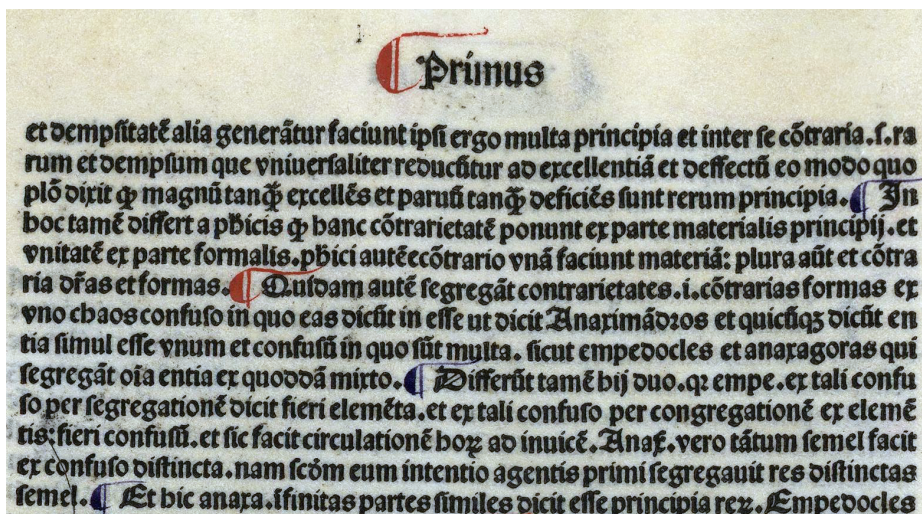 Primus
et dempsitatē alia generātur faciunt ipsi ergo multa principia et inter se cōtraria.s.ra
rum et dempsum que vniuersaliter reducūtur ad excellentiā et deffectū eo modo quo
plō dixit ꝙ magnū tanꝙ̄ excellēs et paruū tanꝙ̄ deficiēs sunt rerum principia. In
hoc tamē differt a phicis ꝙ hanc cōtrarietatē ponunt ex parte materialis principij.et
vnitatē ex parte formalis.phici autē ecōtrario vnā faciunt materiā: plura aūt et cōtra
ria dr̄as et formas. Quidam autē segregāt contrarietates.i.cōtrarias formas ex
vno chaos confuso in quo eas dicūt in esse ut dicit Anaximādros et quicūqꝫ dicūt en
tia simul esse vnum et confusū in quo sūt multa. sicut empedocles et anaxagoras qui
segregāt oīa entia ex quoddā mixto. Differūt tamē hij duo.qꝛ empe.ex tali confu
so per segregationē dicit fieri elemēta.et ex tali confuso per congregationē ex elemē
tis: fieri confusū.et sic facit circulationē hoꝝ ad inuicē.Anax̄.vero tātum semel facit
ex confuso distincta.nam scd̄m eum intentio agentis primi segregauit res distinctas
semel. Et hic anaxa.īfinitas partes similes dicit esse principia reꝝ. Empedocles